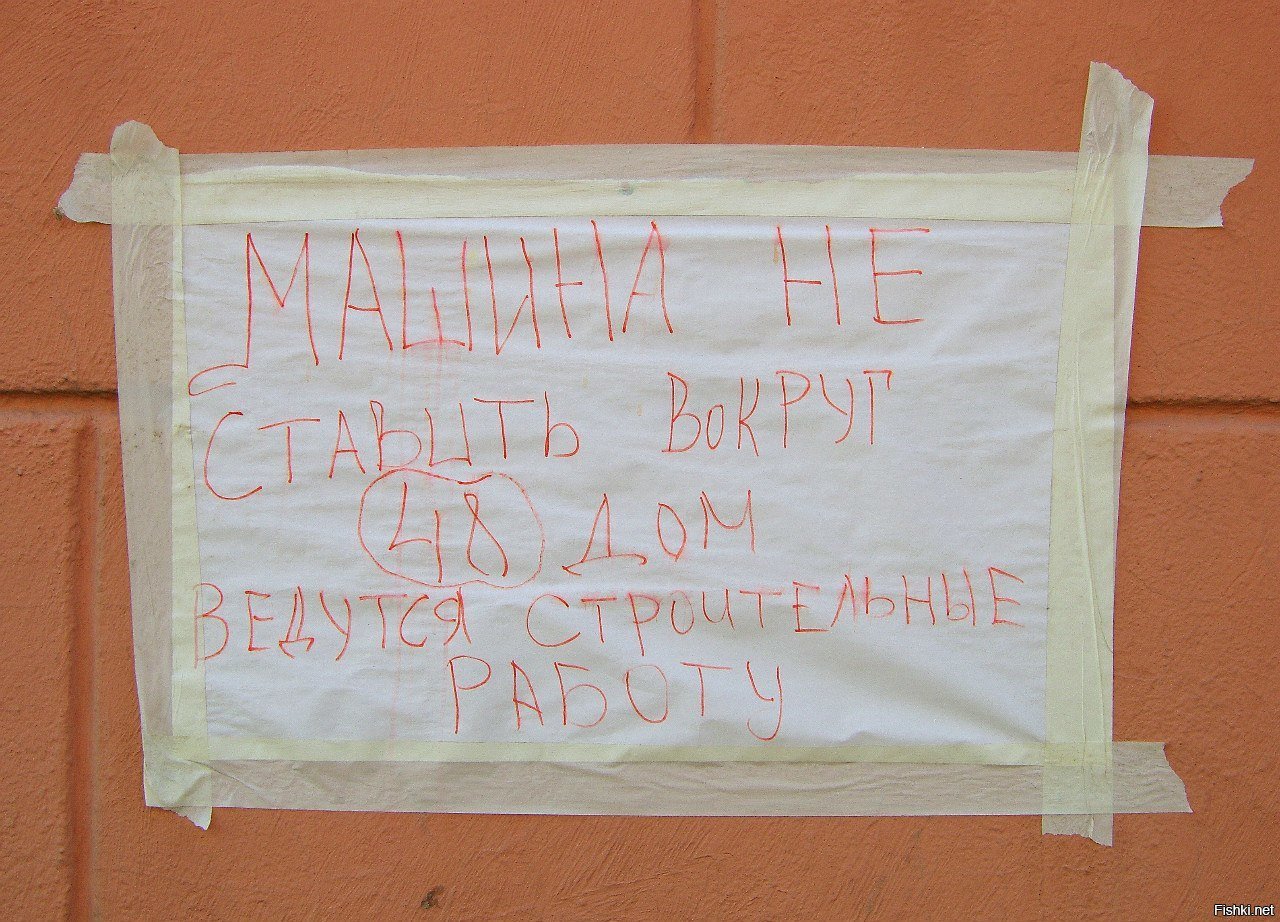 МАШИНА НЕ
СТАВИТЬ ВОКРУГ
48 ДОМ
ВЕДУТСЯ СТРОИТЕЛЬНЫЕ
РАБОТУ
Fishki.net